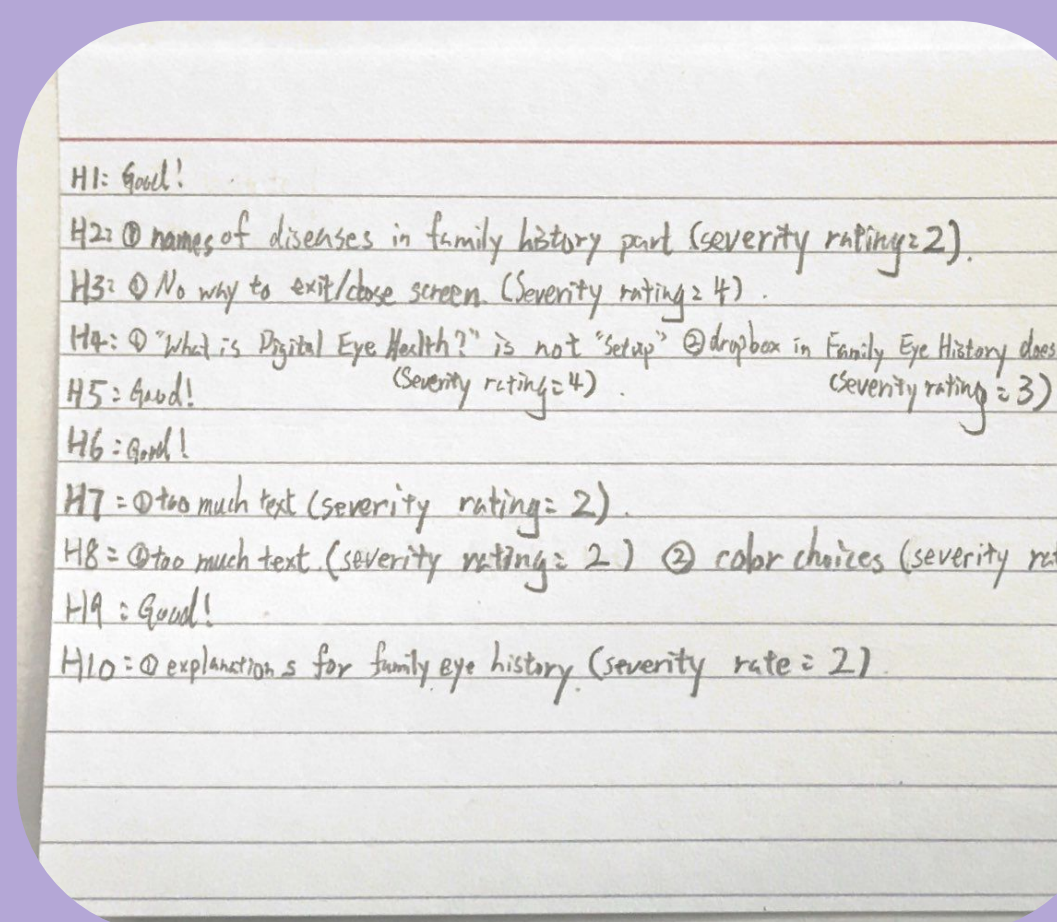 H1: Good!
H2: ① names of diseases in family history part (severity rating: 2).
H3: ① No why to exit/close screen. (Severity rating: 4).
H4: ① "What is Digital Eye Health?" is not "Setup" ② dropbox in Family Eye History does
(Severity rating=4). (severity rating: 3)
H5: Good!
H6: Good!
H7: ① too much text (severity rating: 2).
H8: ① too much text. (severity rating: 2) ② color choices (severity
H9: Good!
H10: ① explanations for family eye history. (severity rate: 2).